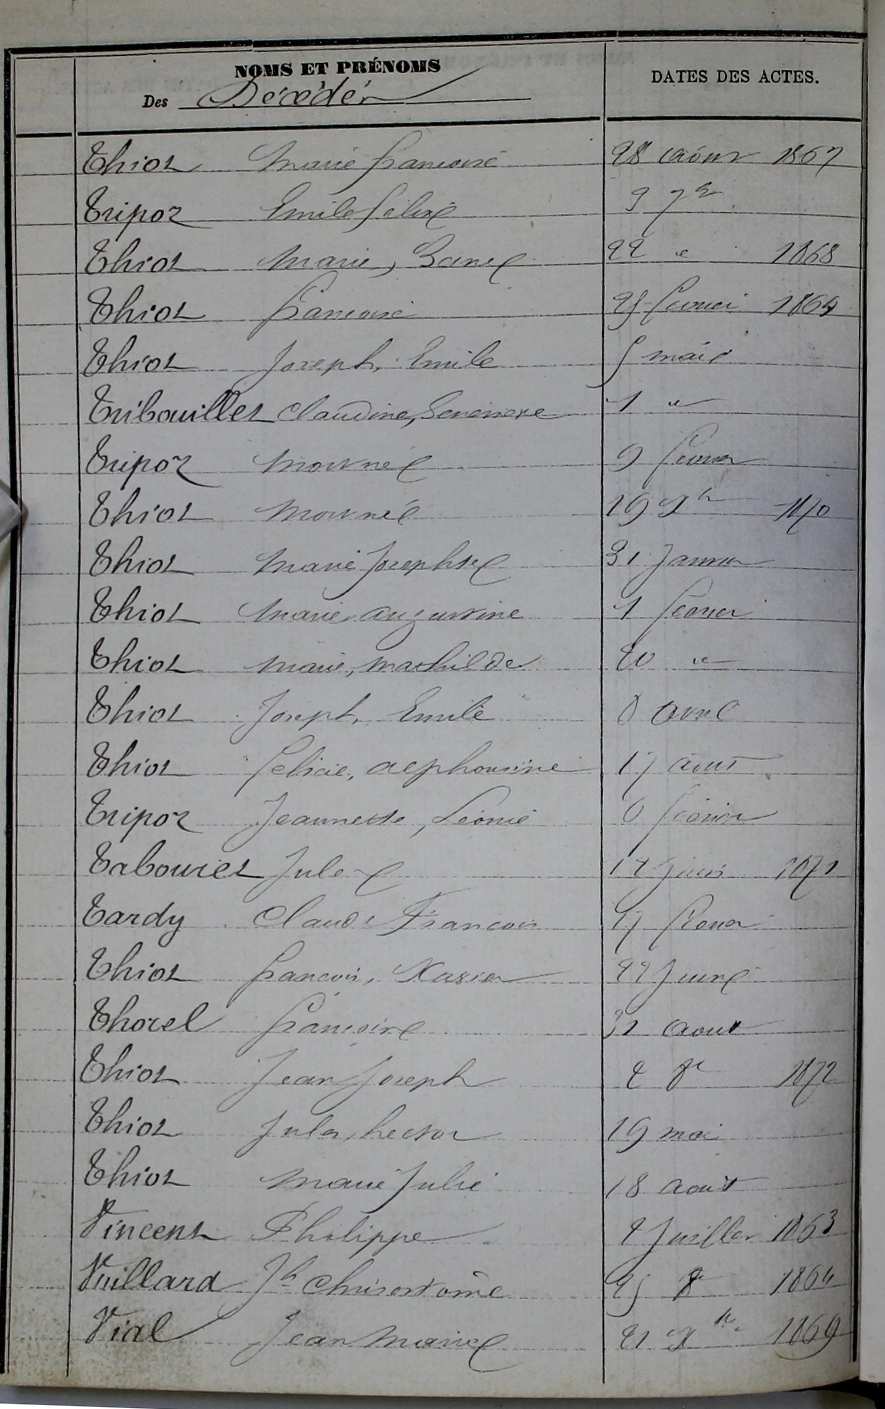 NOMS ET PRÉNOMS
Des Décédés
DATES DES ACTES.
Thiot Marie francoise 28 Aout 1867
Tripoz Emile felix 9 7bre
Thiot Marie, 22 " 1868
Thiot francoise 25 fevrier 1869
Thiot Joseph, Emile 5 mars
Tribouillet Claudine, Genevieve 1 "
Tripoz Mort né 9 fevrier
Thiot Mort né 19 Xbre 1870
Thiot Marie Josephte 31 Janvier
Thiot Marie augustine 1 fevrier
Thiot Marie, mathilde 20 "
Thiot Joseph, Emile 8 avril
Thiot felicie, alphonsine 17 aout
Tripoz Jeannette, Léonie 6 fevrier
Tabouret Jules 1871
Tardy Claude Francois 17 fevrier
Thiot francois, Xavier 22 Juin
Thorel francoise 31 aout
Thiot Jean Joseph 2 1872
Thiot Jules, hector 19 mai
Thiot Marie Julie 18 aout
Vincent Philippe 2 Juillet 1863
Vuillard Jh Chrisostome 25 1864
Vial Jean Marie 21 Xbre 1869